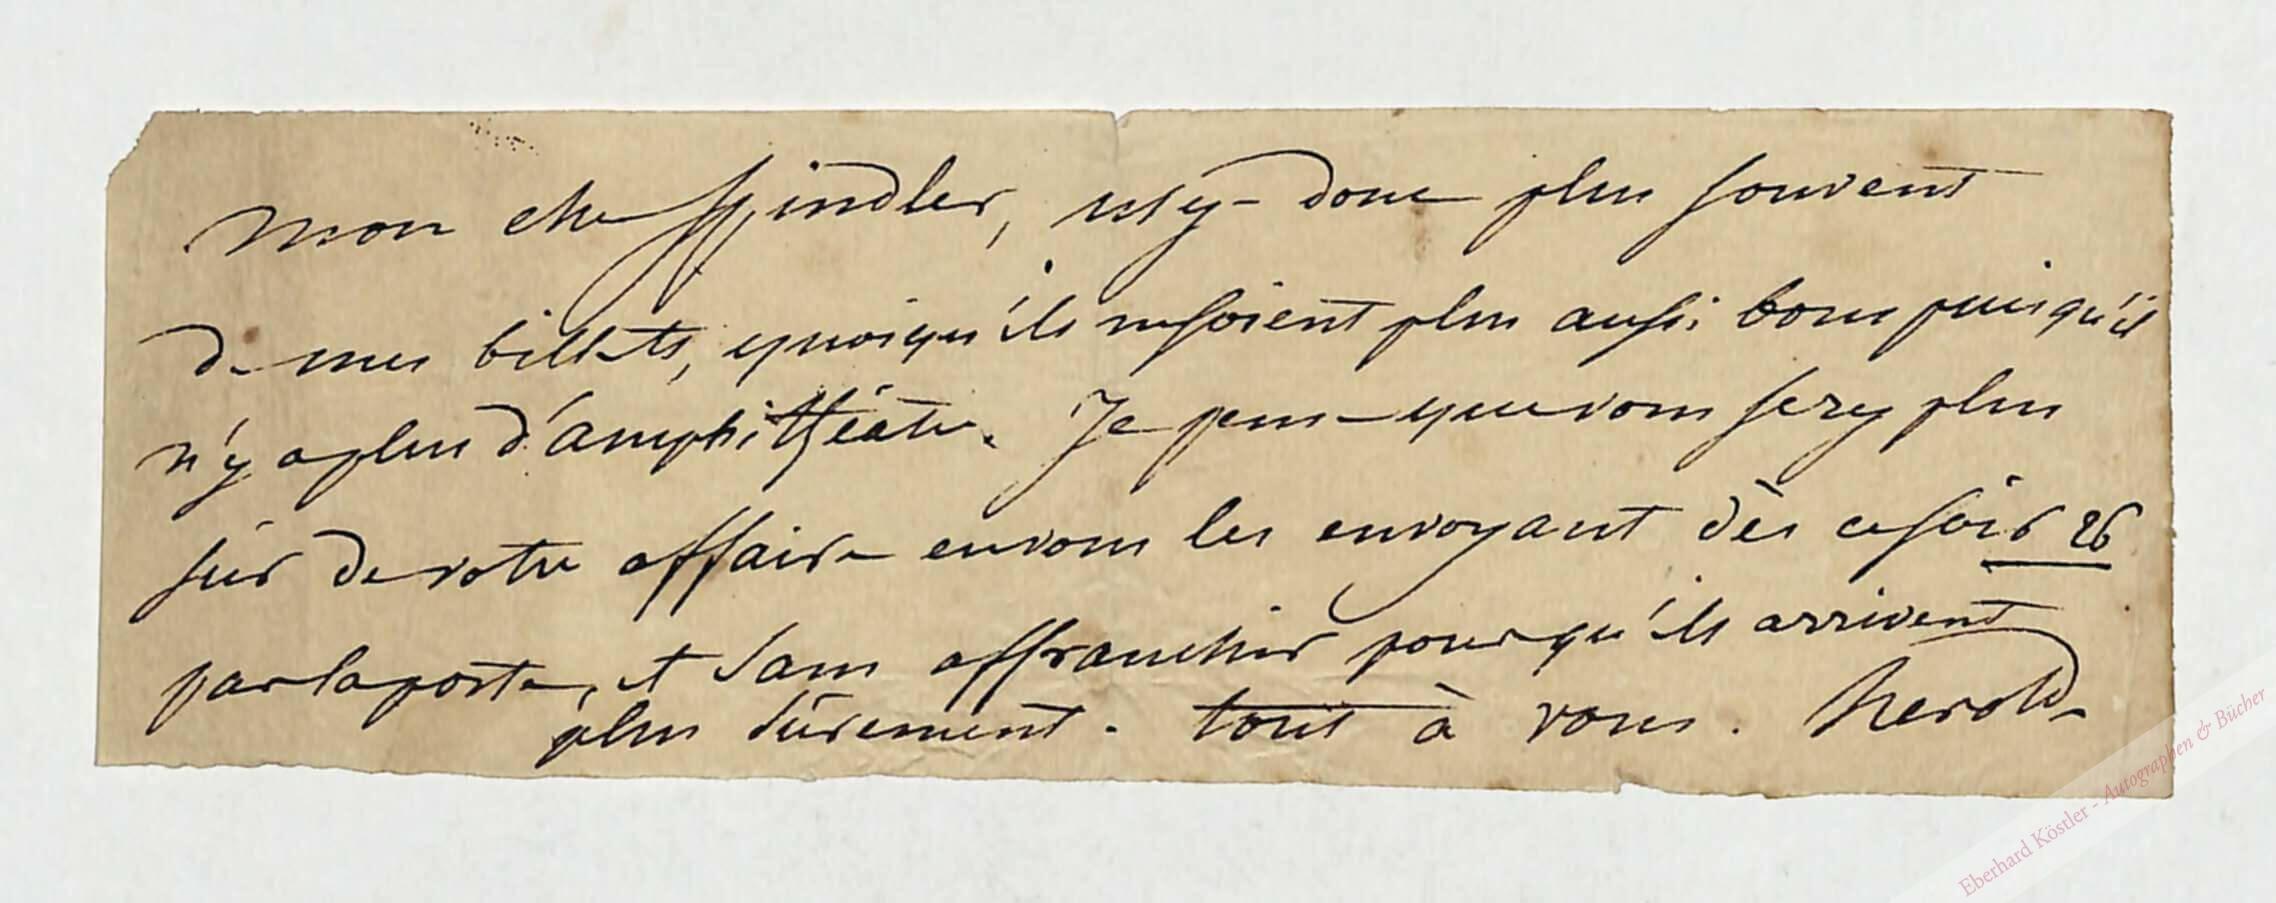 Mon cher Spindler, usez-donc plus souvent
de mes billets, quoiqu'ils ne soient plus aussi bons puisqu'il
n'y a plus d'amphithéatre. Je pense que vous serez plus
sûr de votre affaire en vous les envoyant dès ce soir 26
par la poste, et sans affranchir pour qu'ils arrivent
plus sûrement. tout à vous. herold
Eberhard Köstler - Autographen & Bücher